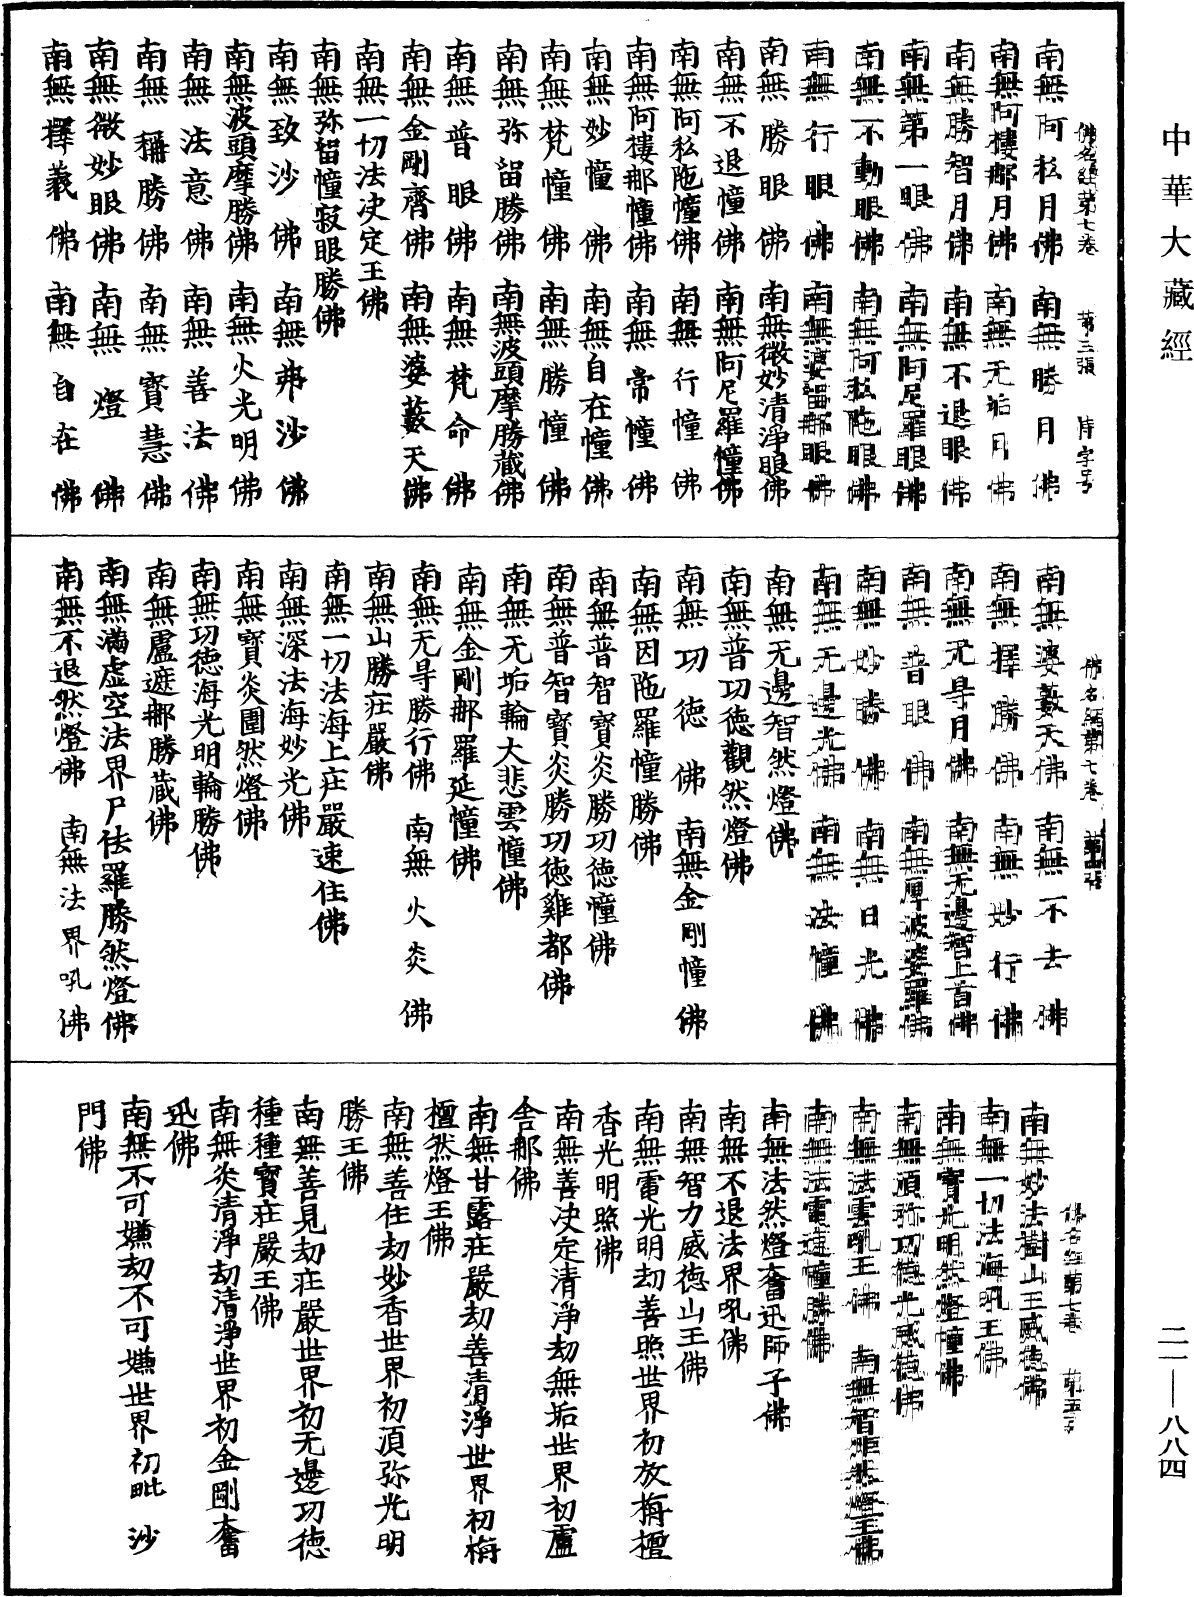 中華大藏經
佛名經第七卷　第三張　侍字号
南無阿私月佛　南無勝月佛
南無阿樓那月佛　南無无垢月佛
南無勝智月佛　南無不退眼佛
南無第一眼佛　南無阿尼羅眼佛
南無不動眼佛　南無阿私陁眼佛
南無行眼佛　南無婆留那眼佛
南無勝眼佛　南無微妙清淨眼佛
南無不退幢佛　南無阿尼羅幢佛
南無阿私陁幢佛　南無行幢佛
南無阿樓那幢佛　南無常幢佛
南無妙幢佛　南無自在幢佛
南無梵幢佛　南無勝幢佛
南無弥留勝佛　南無波頭摩勝藏佛
南無普眼佛　南無梵命佛
南無金剛齊佛　南無婆藪天佛
南無一切法决定王佛
南無弥留幢寂眼勝佛
南無致沙佛　南無弗沙佛
南無波頭摩勝佛　南無火光明佛
南無法意佛　南無善法佛
南無稱勝佛　南無寶慧佛
南無微妙眼佛　南無燈佛
南無擇義佛　南無自在佛
佛名經第七卷　第四張
南無婆藪天佛　南無不去佛
南無擇勝佛　南無妙行佛
南無无㝵月佛　南無无邊智上首佛
南無普眼佛　南無厚波婆羅佛
南無妙勝佛　南無日光佛
南無无邊光佛　南無法幢佛
南無无邊智然燈佛
南無普功德觀然燈佛
南無功德佛　南無金剛幢佛
南無因陁羅幢勝佛
南無普智寶炎勝功德幢佛
南無普智寶炎勝功德雞都佛
南無无垢輪大悲雲幢佛
南無金剛那羅延幢佛
南無无㝵勝行佛　南無火炎佛
南無山勝莊嚴佛
南無一切法海上莊嚴速住佛
南無深法海妙光佛
南無寶炎圍然燈佛
南無功德海光明輪勝佛
南無盧遮那勝藏佛
南無滿虛空法界尸佉羅勝然燈佛
南無不退然燈佛　南無法界吼佛
佛名經第七卷　第五張
南無妙法樹山王威德佛
南無一切法海吼王佛
南無寶光明然燈幢佛
南無須弥功德光威德佛
南無法雲吼王佛　南無智炬然燈王佛
南無法電速幢勝佛
南無法然燈奮迅師子佛
南無不退法界吼佛
南無智力威德山王佛
南無電光明劫善照世界初放栴檀
香光明照佛
南無善决定清淨劫無垢世界初盧
舍那佛
南無甘露莊嚴劫善清淨世界初栴
檀然燈王佛
南無善住劫妙香世界初須弥光明
勝王佛
南無善見劫莊嚴世界初无邊功德
種種寶莊嚴王佛
南無炎清淨劫清淨世界初金剛奮
迅佛
南無不可嫌劫不可嫌世界初毗沙
門佛
二一——八八四